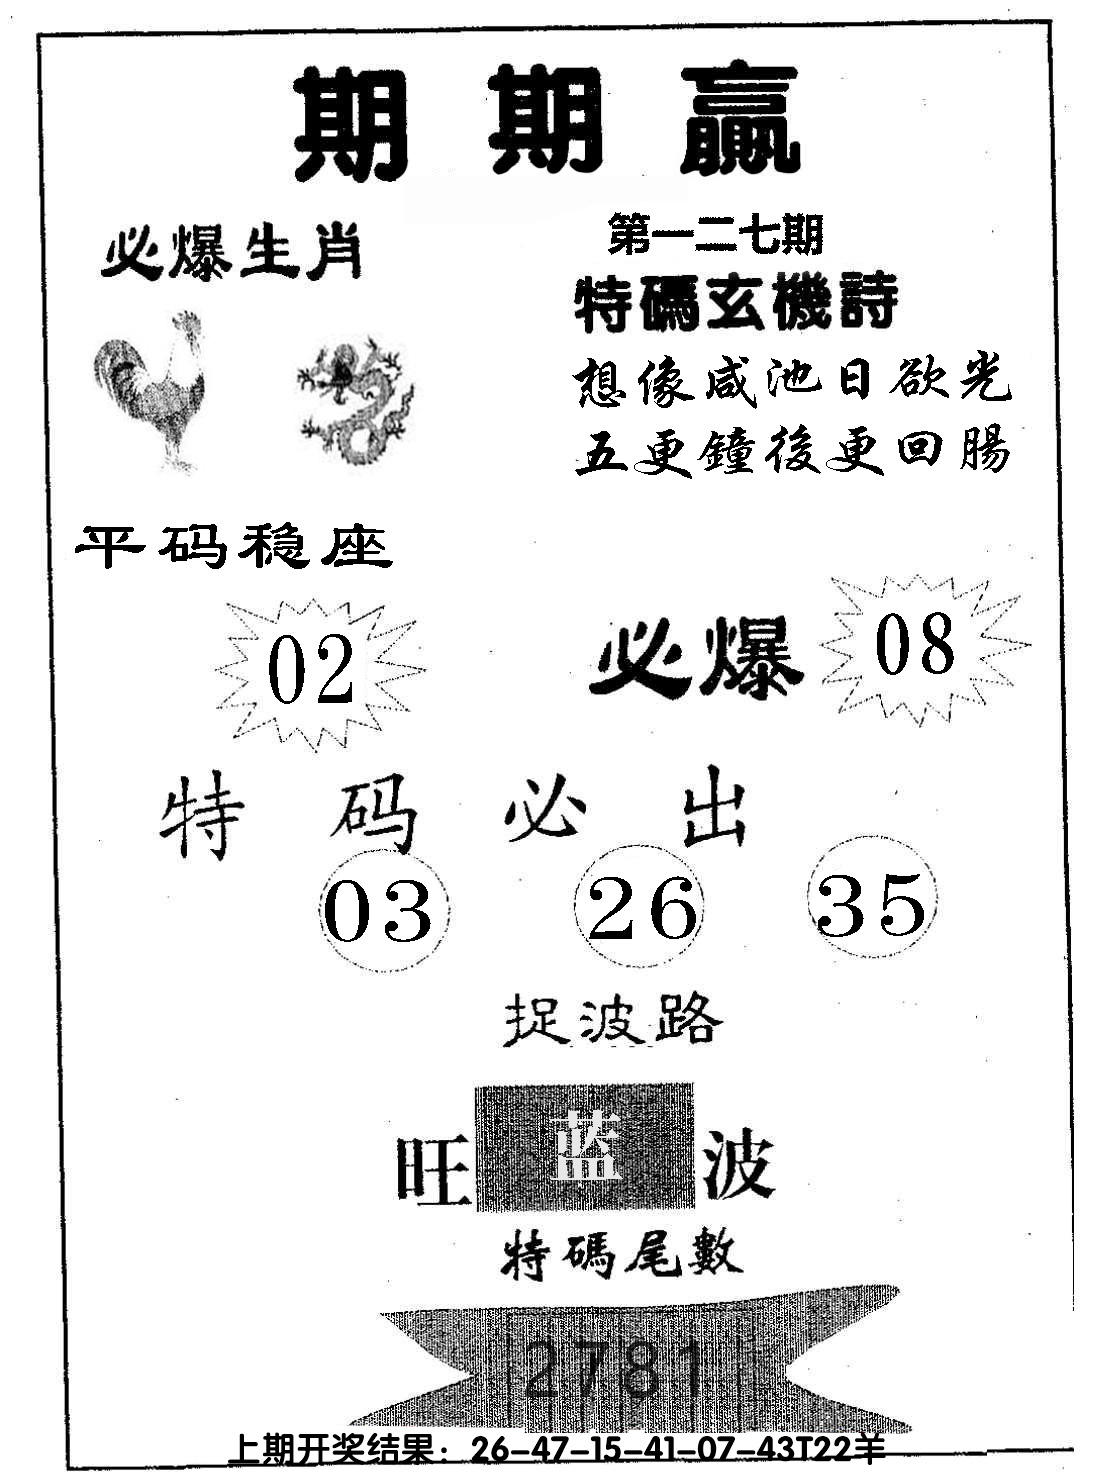 期期贏
必爆生肖
第一二七期
特碼玄機詩
想像咸池日欲光
五更鐘後更回腸
平码稳座
02
必爆 08
特码必出
03 26 35
捉波路
旺 蓝 波
特碼尾數
2781
上期开奖结果：26-47-15-41-07-43T22羊